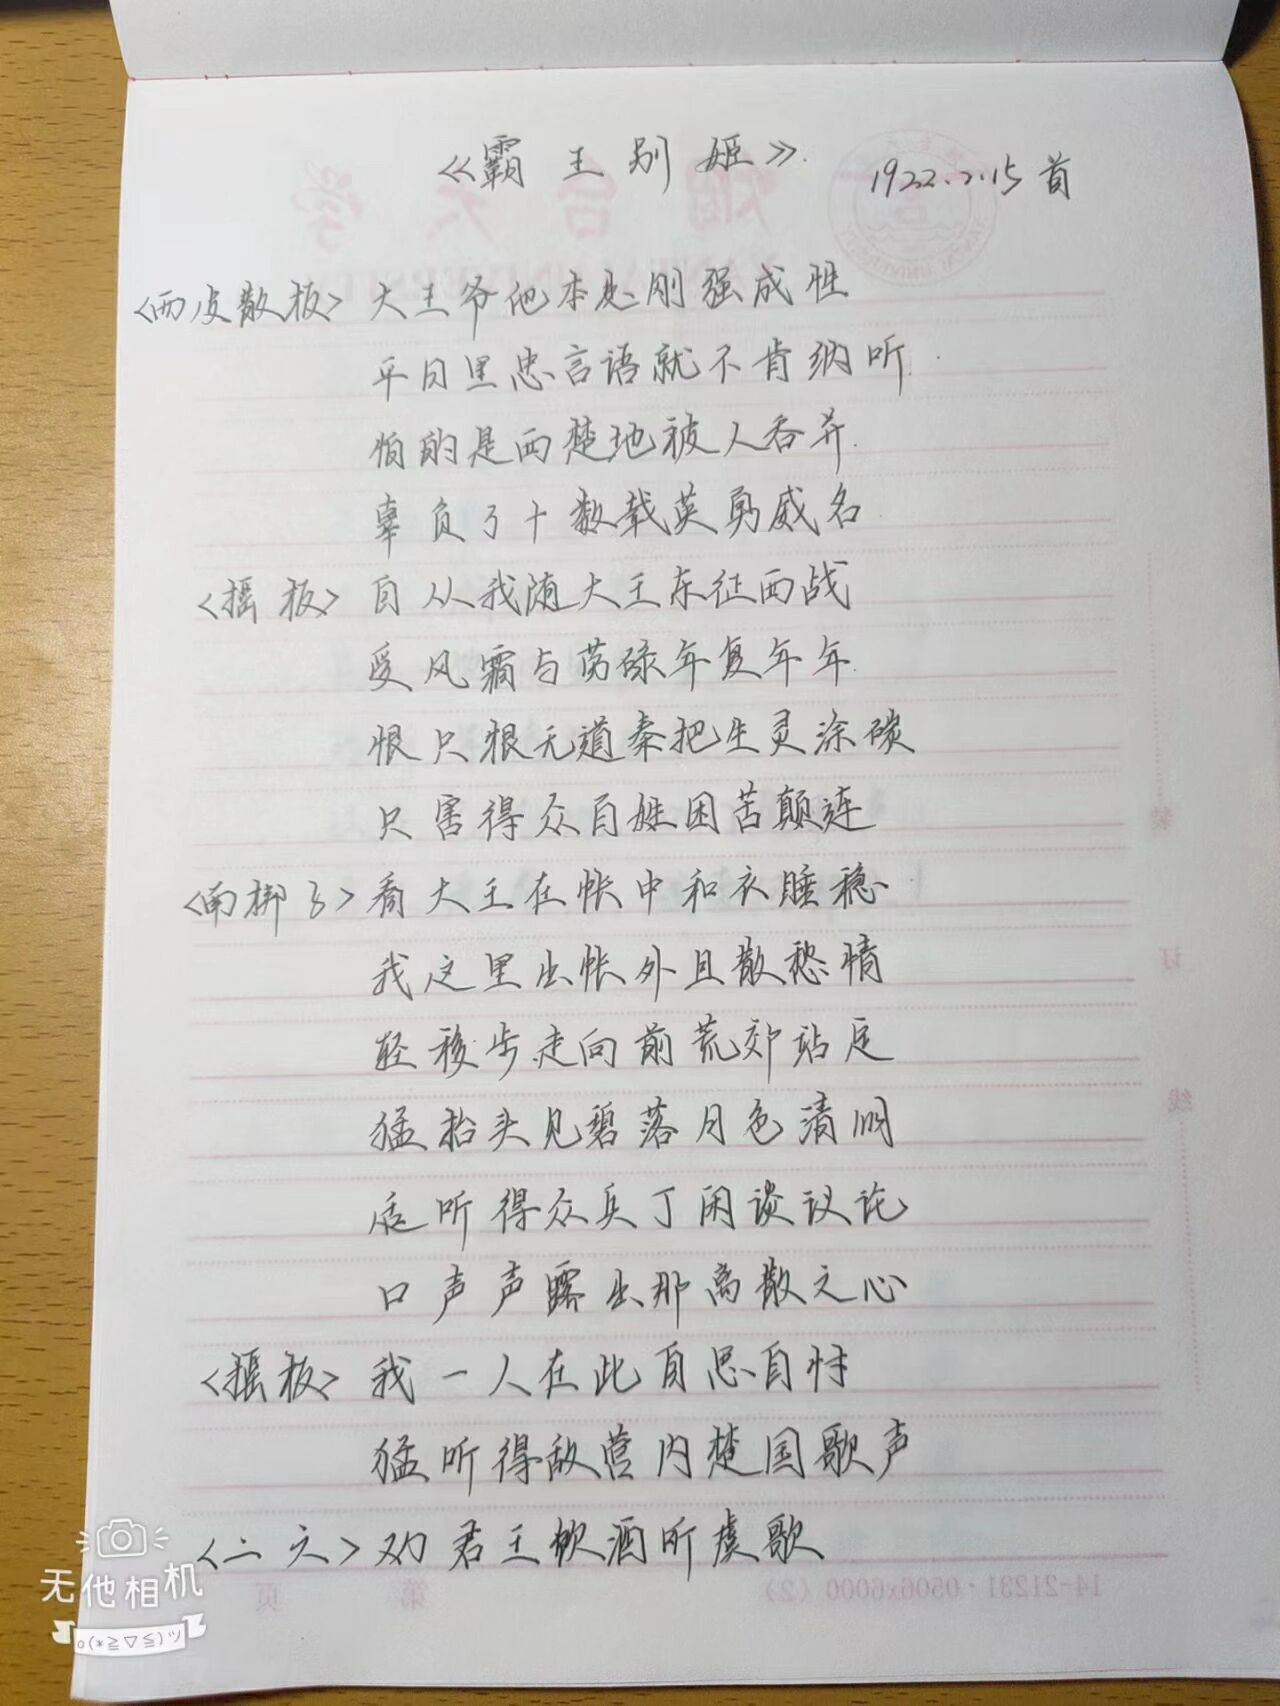 《霸王别姬》. 1922.2.15 首
<西皮散板> 大王爷他本是刚强成性
平日里忠言语就不肯纳听.
怕的是西楚地被人吞并.
辜负了十数载英勇威名
<摇板> 自从我随大王东征西战
受风霜与劳碌年复年年.
恨只狠无道秦把生灵涂碳
只害得众百姓困苦颠连
<南梆子> 看大王在帐中和衣睡稳
我这里出帐外且散愁情
轻移步走向前荒郊站定
猛抬头见碧落月色清明
适听得众兵丁闲谈议论
口声声露出那离散之心
<摇板> 我一人在此自思自忖
猛听得敌营内楚国歌声
<二六> 劝君王饮酒听虞歌
烟台大学
YANTAI UNIVERSITY
装
订
线
14-21231·0506x6000 (2)
第 页
无他相机
o(*≧▽≦)ツ